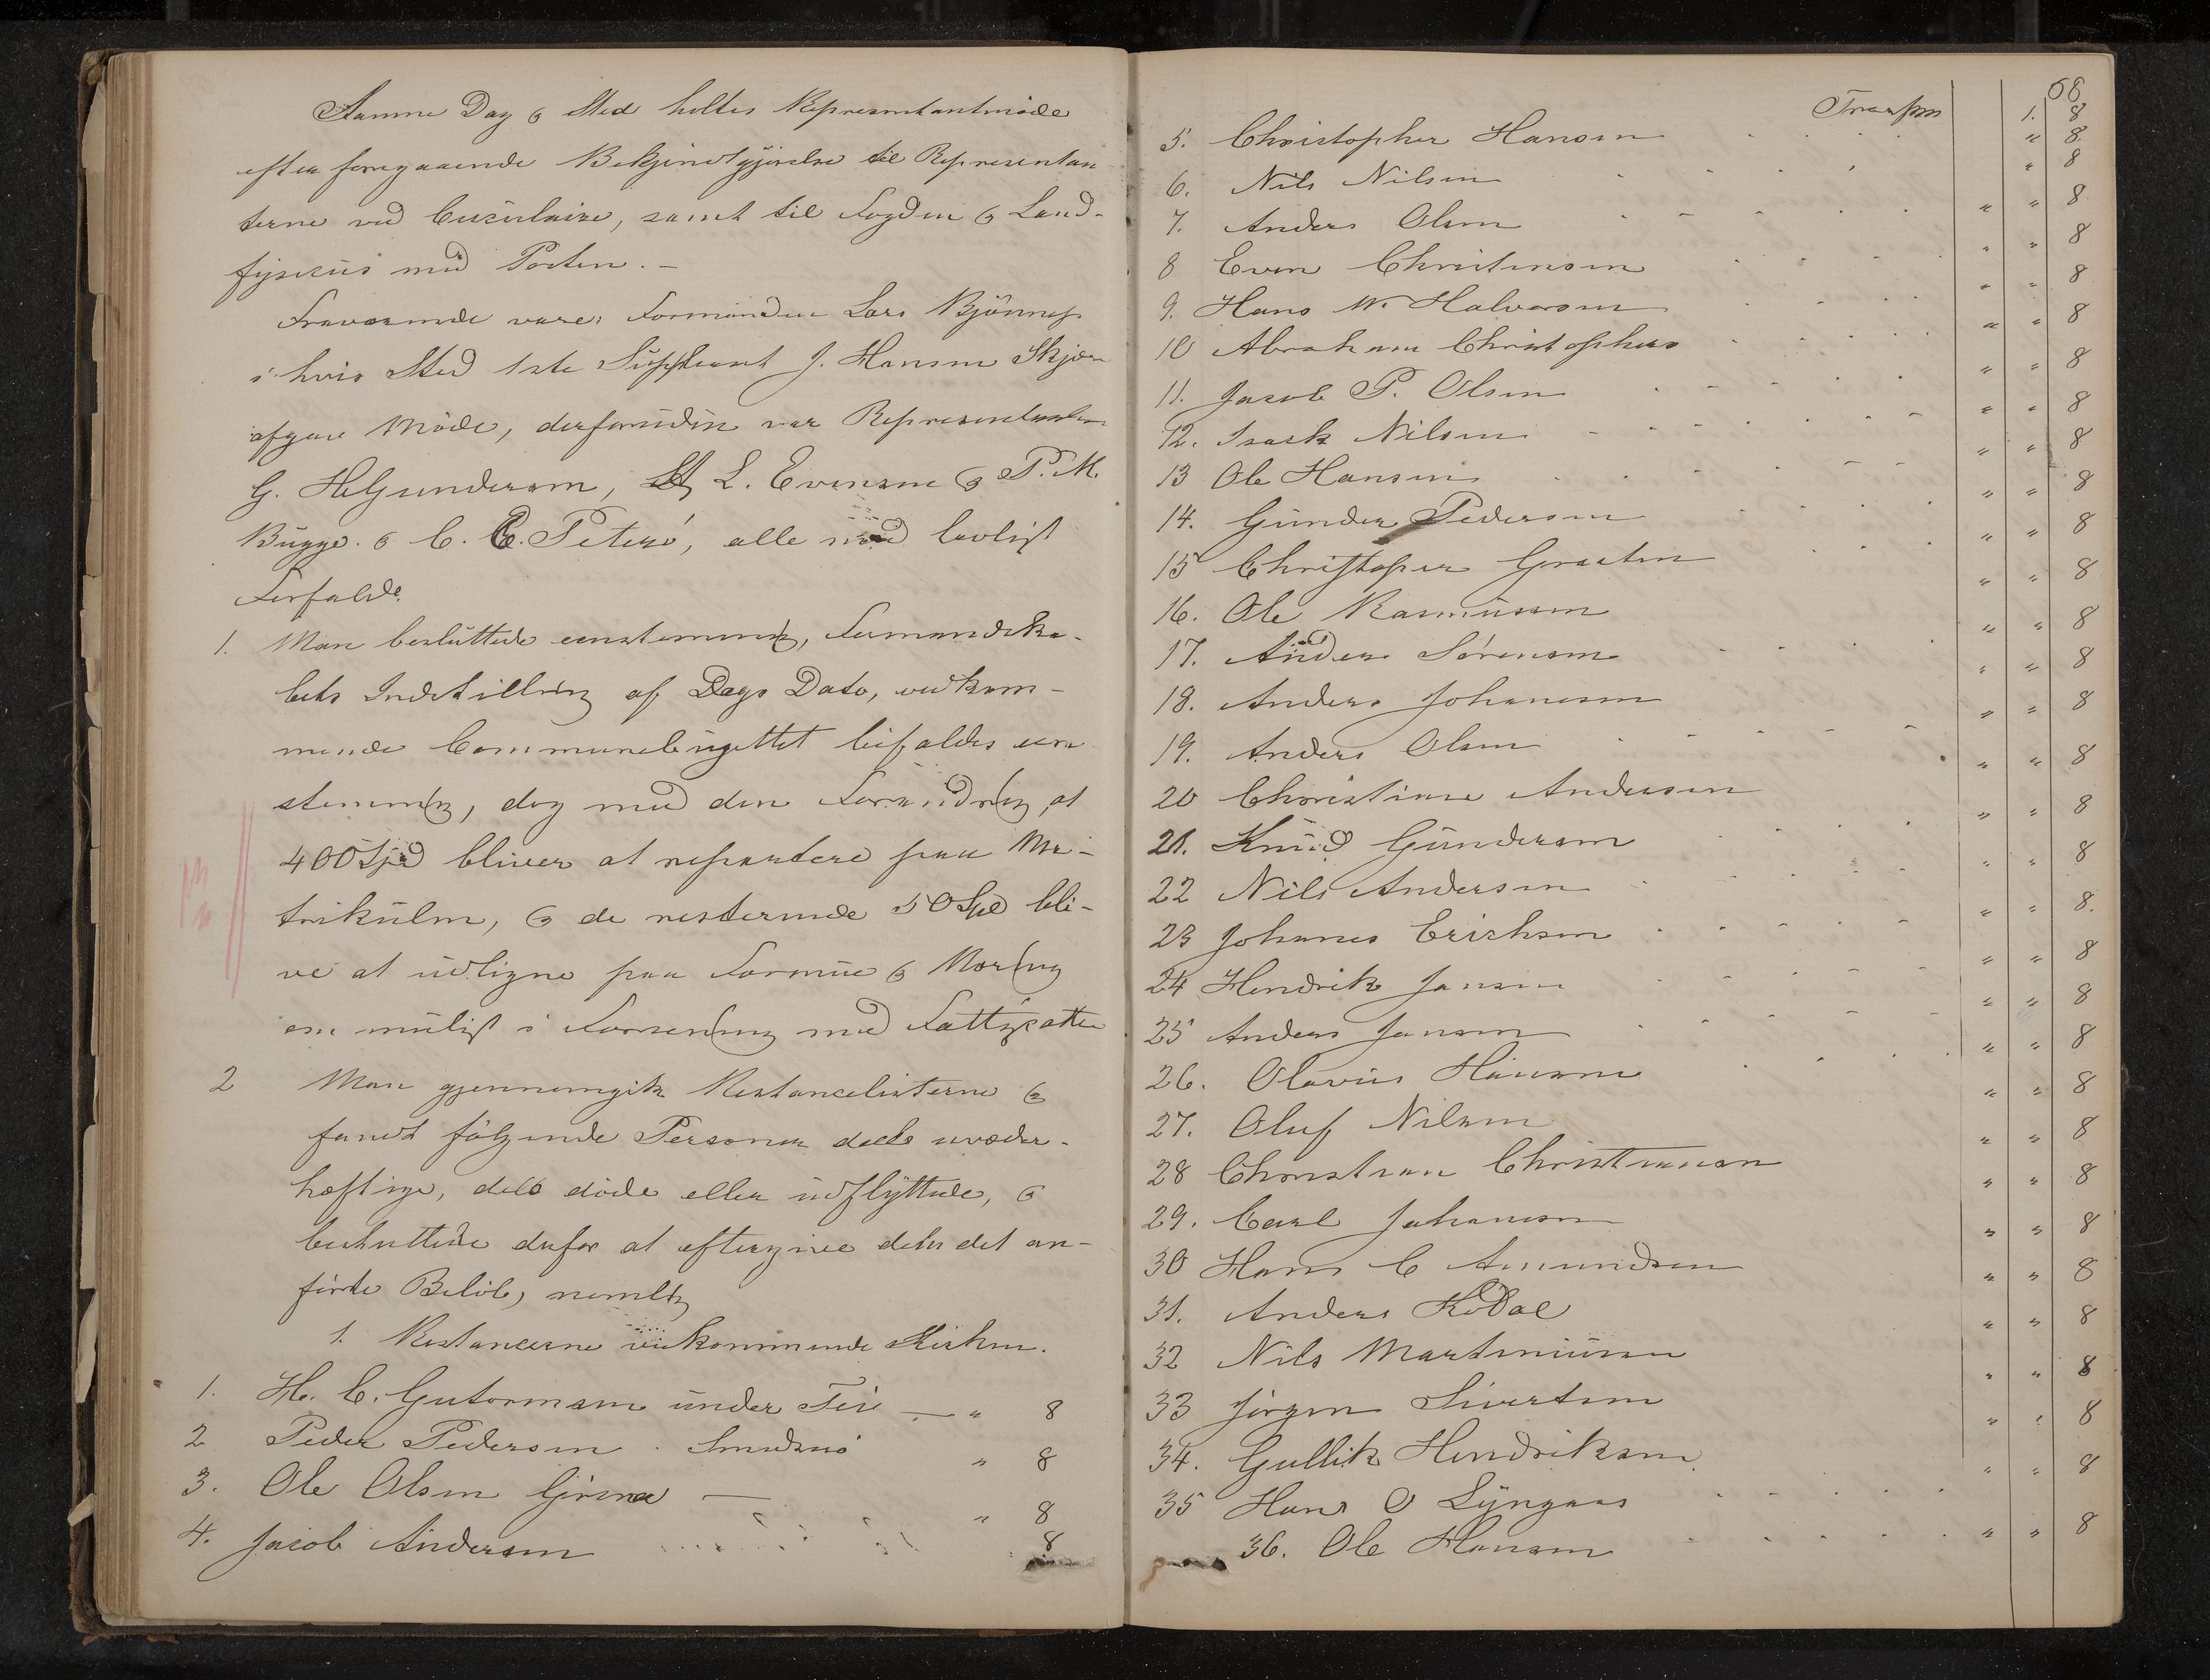 Samme Dag & Sted holtes Representantmöde
efter foregaaende Bekjendtgjörelse til Representan
terne ved Circulaire, samt til Fogden & Land-
fysicus med Posten. -
Fraværende vare: Formanden Lars Bjönnes
i hvis Sted 1ste Suppleant J. Hansen Skjær
afgav Möde, desforuden var Representanten
G. H. Gundersen, L. Evensen & P. M.
Bugge. & C. C. Petersö, alle med lovligt
Forfald.
1. Man besluttede eenstemmig, Formandska-
bets Indstilling af Dags Dato, vedkom-
mende Communebugettet bifaldes een
stemmig, dog med den Forandring, at
400 Spd bliver at repartere paa Ma-
trikulen, & de resterende 50 Spd bli-
ve at udligne paa Formue & Næring
om muligt i Forening med Fattigskatten
2 Man gjennemgik Restancelisterne &
fandt fölgende Personer deels uvæder-
hæftige, dels döde eller udflyttede, &
besluttede derfor at eftergive dem det an-
förte Belöb, nemlig
1. Restancerne vedkommende Kirken.
1. H. C. Gutormsen under Feie — " 8
2 Peder Pedersen . " 8
3. Ole Olsen — " 8
4. Jacob Andersen 8
68
Transp 1. 8
5. Christopher Hansen " 8
6. Nils Nilsen " 8
7. Anders Olsen " " 8
8 Even Christensen " " 8
9. Hans M. Halvorsen " " 8
10 Abraham Christophers " " 8
11. Jacob P. Olsen " " 8
12. Isack Nilsen " " 8
13 Ole Hansen " " 8
14. Gunder Pedersen " " 8
15 Christopher Graaten " " 8
16. Ole Rasmussen " " 8
17. Anders Sörensen " " 8
18. Anders Johanesen " " 8
19. Anders Olsen " " 8
20 Christiane Andersen " " 8
21. Knud Gundersen " " 8
22 Nils Andersen " " 8
23 Johanes Erichsen " " 8.
24 Hendrik Jansen " " 8
25 Anders Jansen " " 8
26. Olavus Hansen " " 8
27. Oluf Nilsen " " 8
28 Christian Christiansen " " 8
29. Carl Johansen " " 8
30 Hans C Amundsen " " 8
31. Anders Kodal " " 8
32 Nils Martiniusen " " 8
33 Jörgen Sivertsen " " 8
34. Gullik Hendriksen " " 8
35 Hans O Lyngaas " " 8
36. Ole Hansen " " 8